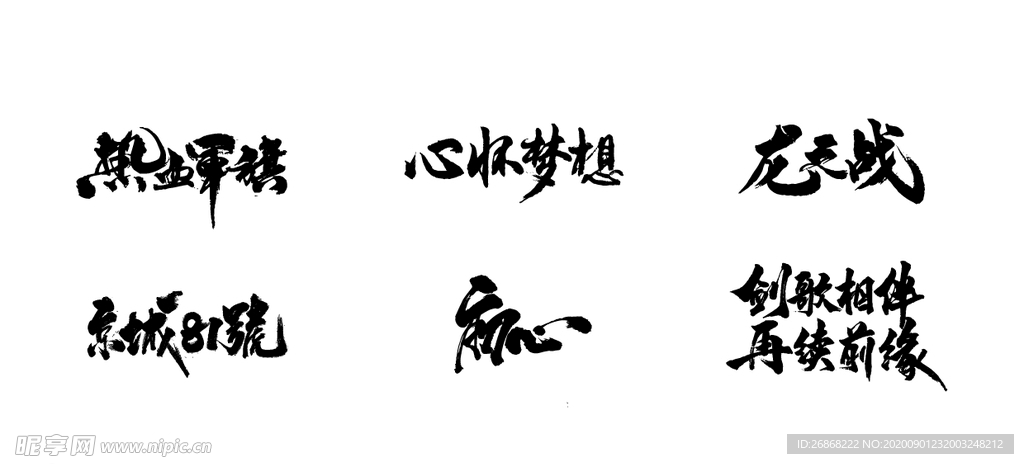 热血軍旗
心怀梦想
龙天战
京城81號
剑歌相伴
再续前缘
昵享网 www.nipic.cn
ID:26868222 NO:20200901232003248212